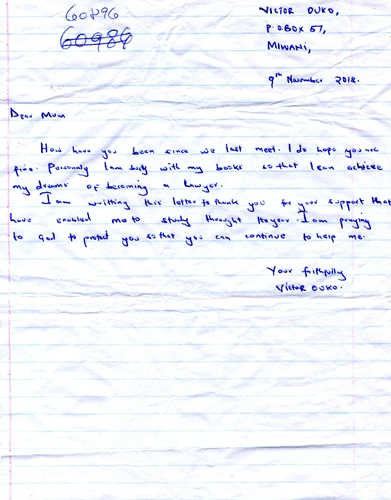 60896
60986
VICTOR OUKO,
P.O BOX 57,
MIWANI,
9th November 2018.
Dear Mum
How have you been since we last meet. I do hope you are
fine. Personaly I am busy with my books so that I can achieve
my dreams of becoming a Lawyer.
I am writting this letter to thank you for your support that
have enabled me to study throught the year. I am praying
to God to protect you so that you can continue to help me.
Your faithfully
VICTOR OUKO.